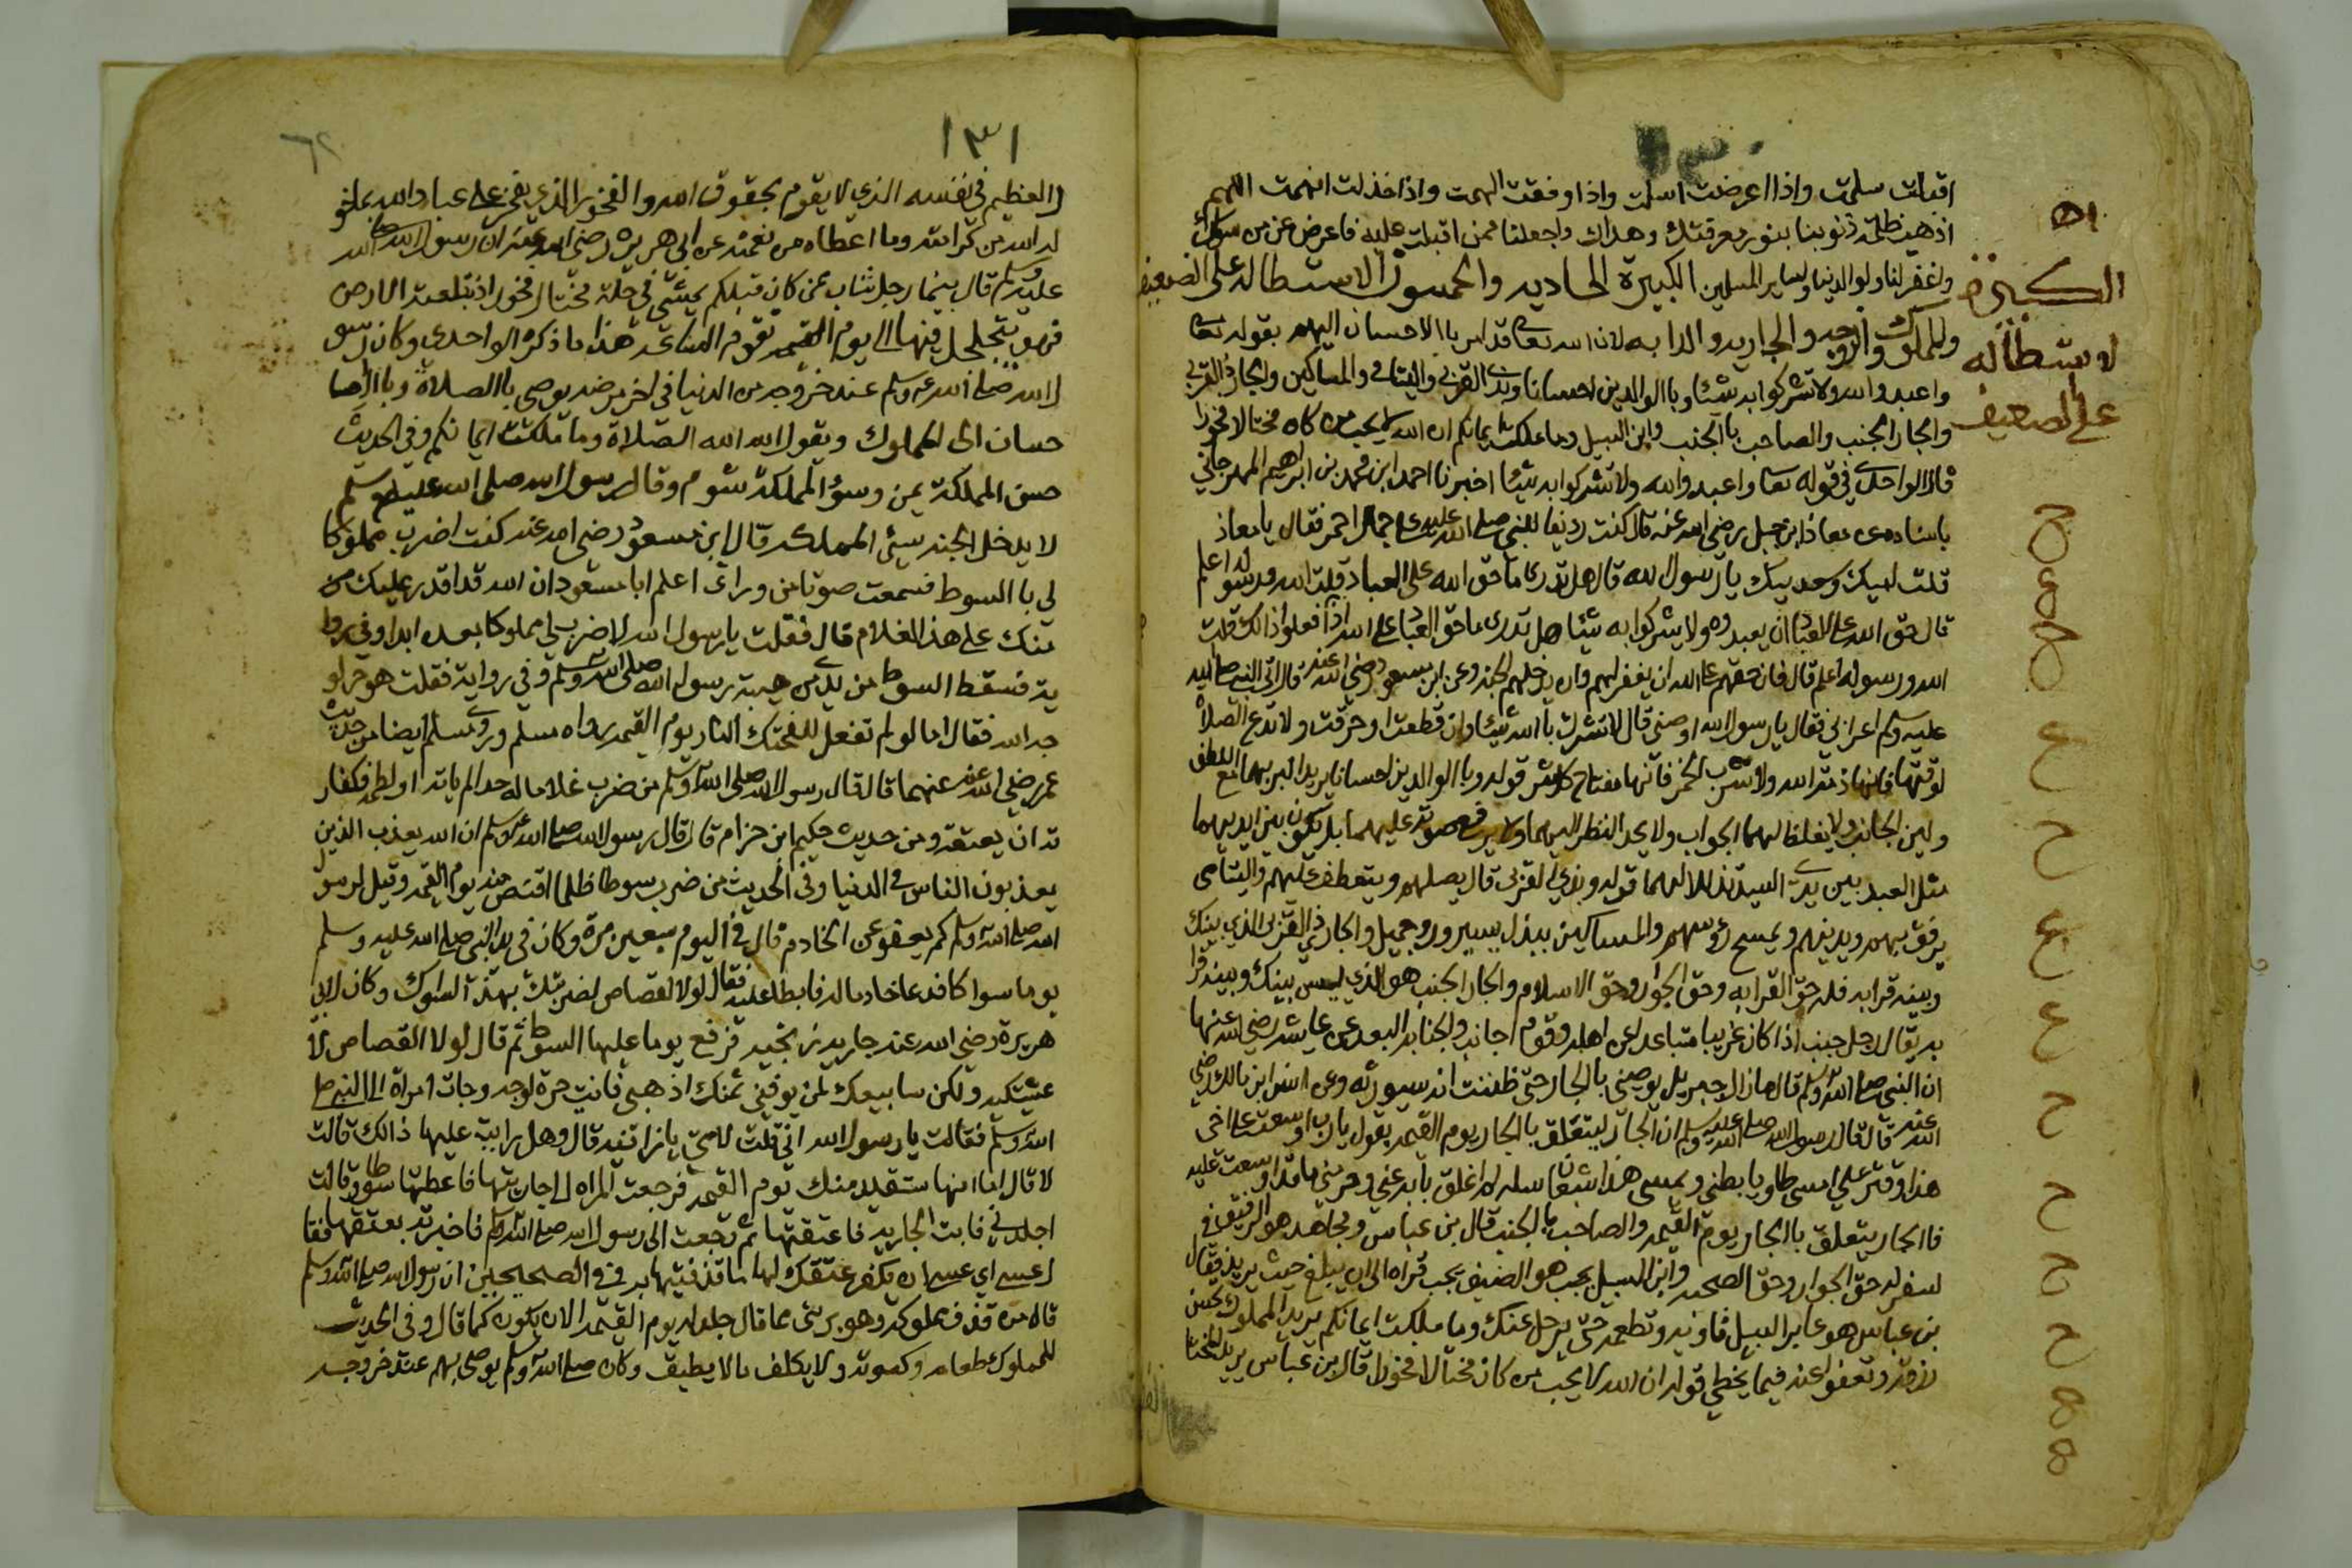 اقبلت سلمت واذا اعرضت اسلمت واذا وفقت الهمت واذا خذلت اتهمت اللهم
اذهب ظلمة ذنوبنا بنور معرفتك وهداك واجعلنا ممن اقبلت عليه فاعرض عن من سواك
واغفر لنا ولوالدينا ولساير المسلمين الكبيرة الحاديه والخمسون الاستطالة على الضعيف
والمملوك والزوجه والجاريه والدابه لان الله تعا قد امر باالاحسان اليهم بقوله تعا
واعبدوا الله ولا تشركوا به شئا وباالوالدين احسانا وبذي القربى واليتامى والمساكين والجار ذي القربى
والجار الجنب والصاحب باالجنب وابن السبيل وما ملكت ايمانكم ان الله لا يحب من كان مختالا فخورا
قال الواحدي في قوله تعا واعبدوا الله ولا تشركوا به شيئا اخبرنا احمد ابن محمد بن ابراهيم المهرجاني
باسناده عن معاذ ابن جبل رضي الله عنه قال كنت رديفا للنبي صلى الله عليه على حمار احمر فقال يا معاذ
قلت لبيك وسعديك يا رسول الله قال هل تدري ما حق الله على العباد قلت الله ورسوله اعلم
قال حق الله على العباد ان يعبدوه ولا يشركوا به شيئا هل تدري ما حق العباد على الله اذا فعلوا ذالك قلت
الله ورسوله اعلم قال فان حقهم على الله ان يغفر لهم وان يدخلهم الجنه وعن ابن مسعود رضي الله عنه قال اتى النبي صلى الله
عليه وسلم اعرابي فقال يا رسول الله اوصني قال لا تشرك باالله شيئا وان قطعت او حرقت ولا تدع الصلاة
لوقتها فانها ذمة الله ولا تشرب الخمر فانها مفتاح كل شر قوله وباالوالدين احسانا يريد البر بهما مع اللطف
ولين الجانب ولا يغلظ لهما الجواب ولا يحد النظر اليهما ولا يرفع صوته عليهما بل يكون بين ايديهما
مثل العبد بين يدي السيد تذللا لهما قوله وبذي القربى قال يصلهم ويتعطف عليهم واليتامى
يرفق بهم ويدنيهم ويمسح رؤسهم والمساكين ببذل يسير ورد جميل والجار ذي القربى الذي بينك
وبينه قرابه فله حق القرابه وحق الجوار وحق الاسلام والجار الجنب هو الذي ليس بينك وبينه قرا
به يقال رجل جنب اذا كان غريبا متباعدا عن اهله وقوم اجانب والجنابه البعد عن عايشه رضي الله عنها
ان النبي صلى الله وسلم قال ما زال جبريل يوصيني باالجار حتى ظننت انه سيورثه وعن انس ابن مالك رضي
الله عنه قال قال رسول الله صلى الله عليه وسلم ان الجار ليتعلق باالجار يوم القيمه يقول يا رب اوسعت على اخي
هذا وقترت علي امسى طاويا بطني ويمسي هذا شبعانا سله لم اغلق بابه عني وحرمني ما قد اوسعت عليه
فاالجار يتعلق باالجار يوم القيمه والصاحب باالجنب قال بن عباس ومجاهد هو الرفيق في
السفر له حق الجوار وحق الصحبه وابن السبيل يجب هو الضيف يجب قراه الى ان يبلغ حيث يريد وقال
بن عباس هو عابر السبيل فاويه وتطعمه حتى يرحل عنك وما ملكت ايمانكم يريد المملوك تحسن
رزقه وتعفوا عنه فيما يخطي قوله ان الله لا يحب من كان مختالا فخورا قال بن عباس يريد المختا
٥١
الكبيرة
لاستطاله
على الضعيف
١٣١
٦٢
ل العظيم في نفسه الذي لا يقوم بحقوق الله والفخور الذي يفخر على عباد الله بما خو
له الله من كرامته وما اعطاه من نعمته عن ابي هريرة رضي الله عنه ان رسول الله صلى الله
عليه وسلم قال بينما رجل شاب ممن كان قبلكم يمشي في حلة مختال فخور اذ ابتلعته الارض
فهو يتجلجل فيها الى يوم القيمه تقوم الساعه هذا ما ذكره الواحدي وكان رسو
ل الله صلى الله عليه وسلم عند خروجه من الدنيا في اخر مرضه يوصي باالصلاة وباالاحسا
حسان الى المملوك ويقول الله الله الصلاة وما ملكت ايمانكم وفي الحديث
حسن المملكة يمن وسؤ المملكة شوم وقال رسول الله صلى الله عليه وسلم
لا يدخل الجنه سيئ المملكه قال ابن مسعود رضي الله عنه كنت اضرب مملوكا
لي باالسوط فسمعت صوتا من وراي اعلم ابا مسعود ان الله قد اقدر عليك من
منك على هذا الغلام قال فقلت يا رسول الله لا ضرب لي مملوكا بعده ابدا وفي روا
ية فسقط السوط من يدي من هيبة رسول الله صلى الله وسلم وفي رواية فقلت هو حر لو
جه الله فقال اما لو لم تفعل للفحتك النار يوم القيمه رواه مسلم وروى مسلم ايضا من حديث
عمر رضي الله عنهما قال قال رسول الله صلى الله وسلم من ضرب غلاما له حدا لم ياته او لطمه فكفار
ته ان يعتقه ومن حديث حكيم ابن حزام قال قال رسول الله صلى الله وسلم ان الله يعذب الذين
يعذبون الناس في الدنيا وفي الحديث من ضرب سوطا ظلما اقتص منه يوم القيمه وقيل لرسول
الله صلى الله وسلم كم يعفو عن الخادم قال في اليوم سبعين مرة وكان في يد النبي صلى الله عليه وسلم
يوما سواكا فدعا خادما له فابطا عليه فقال لولا القصاص لضربتك بهذا السواك وكان لابي
هريرة رضي الله عنه جاريه زنجيه فرفع يوما عليها السوط ثم قال لولا القصاص لا
غشيتكيه ولكن سابيعك لمن يوفيني ثمنك اذهبي فانت حرة لوجه وجات امراة الى النبي صلى
الله وسلم فقالت يا رسول الله اني قلت لامتي يا زانيه قال وهل رايت عليها ذالك قالت
لا قال اما انها ستقيد منك يوم القيمه فرجعت المراه الى جاريتها فاعطتها سوطا وقالت
اجلديني فابت الجاريه فاعتقتها ثم رجعت الى رسول الله صلى الله وسلم فاخبرته بعتقها فقا
ل عسى اي عسى ان يكفر عتقك لها ما قذفتيها به وفي الصحيحين ان رسول الله صلى الله وسلم
قال من قذف مملوكه وهو بريئ مما قال جلد له يوم القيمه الا ان يكون كما قال وفي الحديث
للمملوك طعامه وكسوته ولا يكلف ما لا يطيق وكان صلى الله وسلم يوصي بهم عند خروجه